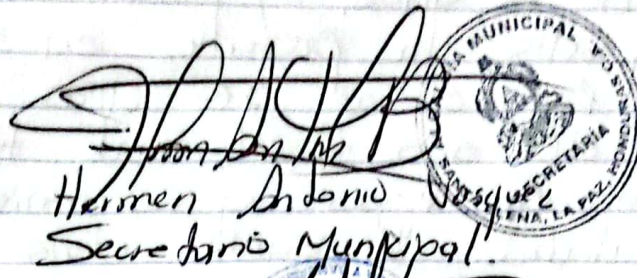 Hermen Antonio Vasquez
Secretario Municipal.
MUNICIPAL
SECRETARIA
ELENA, LA PAZ, HONDURAS C.A.